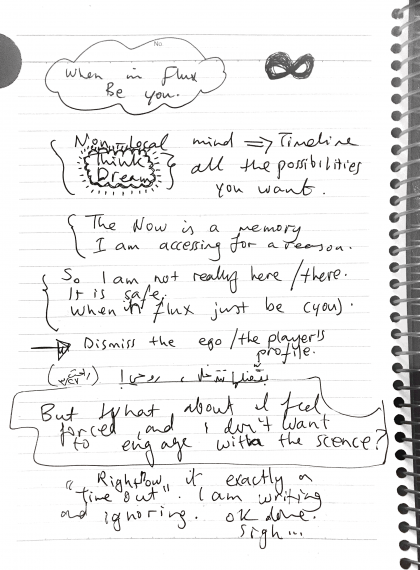 No
When in flux
Be you.
Non-local mind => Timeline
Think Dream all the possibilities
you want.
The Now is a memory
I am accessing for a reason.
So I am not really here / there.
It is safe.
When in flux just be (you).
Dismiss the ego / the player's
profile.
روحي!
But what about I feel
forced and I don't want
to engage with the scence?
"Right now" it exactly a
"Time out". I am writing
and ignoring. ok done.
Sigh...